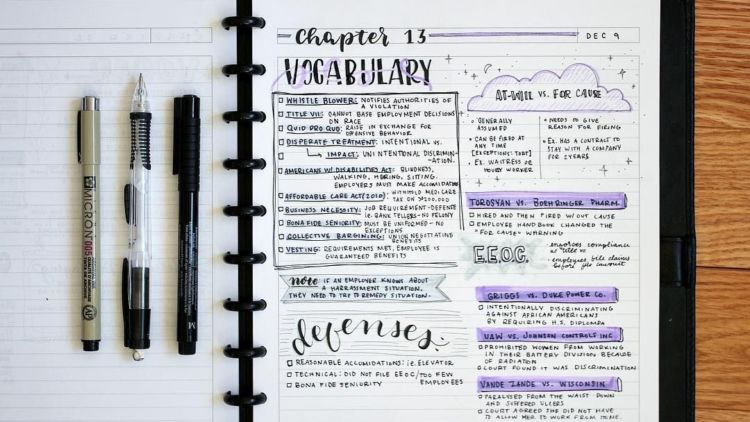 Chapter 13
DEC 9
VOCABULARY
WHISTLE BLOWER: NOTIFIES AUTHORITIES OF
A VIOLATION
TITLE VII: CANNOT BASE EMPLOYMENT DECISIONS
ON RACE
QUID PRO QUO: RAISE IN EXCHANGE FOR
OFFENSIVE BEHAVIOR
DISPERATE TREATMENT: INTENTIONAL VS.
IMPACT: UNINTENTIONAL DISCRIMIN-
ATION.
AMERICANS W/ DISABILITIES ACT: BLINDNESS,
WALKING, HEARING, SITTING.
EMPLOYERS MUST MAKE ACCOMIDATIONS
AFFORDABLE CARE ACT (2010): WITHHOLD MEDICARE
TAX ON $200,000
BUSINESS NECESSITY: JOB REQUIREMENT-DEFENSE
i.e. BANK TELLERS - NO FELONY
BONA FIDE SENIORITY: MUST BE UNIFORMED - NO
EXCEPTIONS
COLLECTIVE BARGINING: UNION NEGOTIATIVE
BENEFITS
VESTING: REQUIREMENTS MET, EMPLOYEE IS
GUARANTEED BENEFITS
note IF AN EMPLOYER KNOWS ABOUT
A HARRASSMENT SITUATION,
THEY NEED TO TRY TO REMEDY SITUATION.
defenses.
REASONABLE ACCOMIDATIONS: i.e. ELEVATOR
TECHNICAL: DID NOT FILE EEOC/TOO FEW
EMPLOYEES
BONA FIDE SENIORITY
AT-WILL VS. FOR CAUSE
GENERALLY
ASSUMED
CAN BE FIRED AT
ANY TIME
[EXCEPTIONS: TORT]
EX. WAITRESS OR
HOURLY WORKER
NEEDS TO GIVE
REASON FOR FIRING
EX. HAS A CONTRACT TO
STAY WITH A COMPANY
FOR 2 YEARS
TOROSYAN VS. BOEHRINGER PHARM.
HIRED AND THEN FIRED W/OUT CAUSE
EMPLOYEE HANDBOOK CHANGED THE
"FOR CAUSE" WARNING
E.E.O.C.
enforces compliance
w/ Title VII
employees file claims
before lawsuit
GRIGGS VS. DUKE POWER CO.
INTENTIONALLY DISCRIMINATING
AGAINST AFRICAN AMERICANS
BY REQUIRING H.S. DIPLOMA
UAW VS. JOHNSON CONTROLS INC
PROHIBITED WOMEN FROM WORKING
IN THEIR BATTERY DIVISION BECAUSE
OF RADIATION
COURT FOUND IT WAS DISCRIMINATION
VANDE ZANDE VS. WISCONSIN
PARALYSED FROM THE WAIST DOWN
AND SUFFERED ULCERS
COURT AGREED SHE DID NOT HAVE
TO ALLOW HER TO WORK FROM HOME.
MICRON 005
M